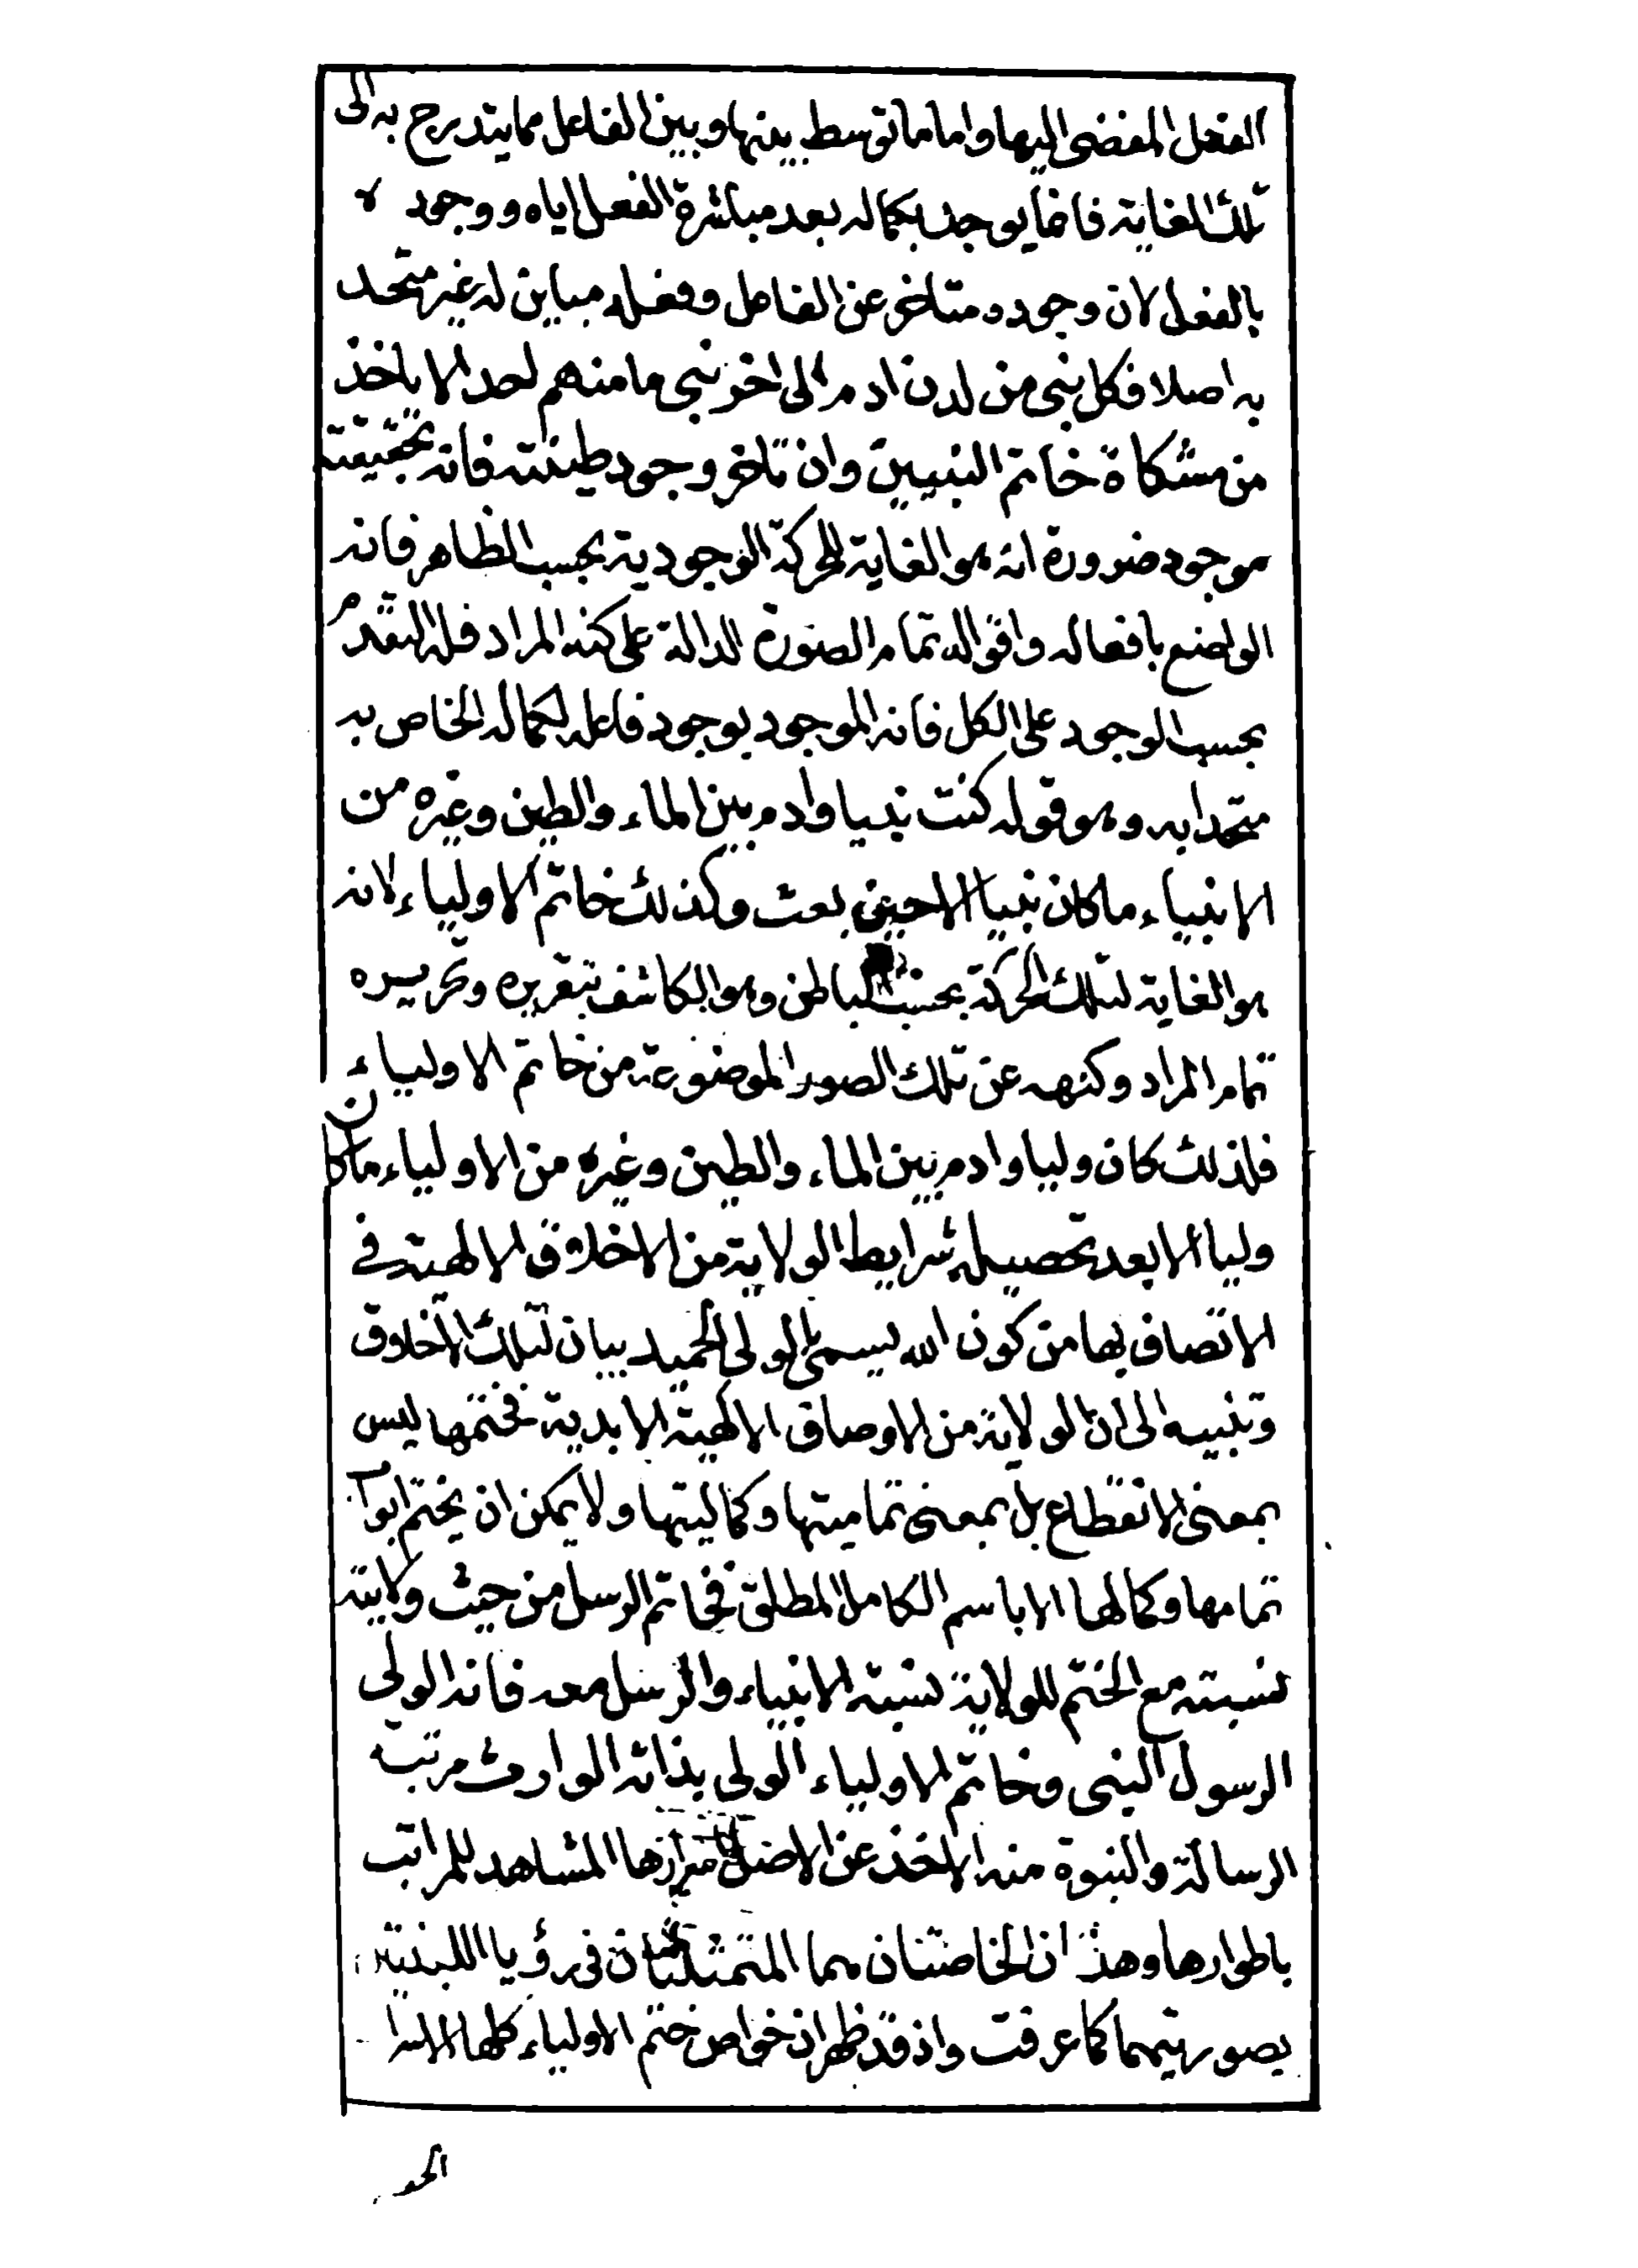 الفعل المفضى اليها واما ما توسط بينها وبين الفاعل مما يتدرج به الى
تلك الغاية فانما يوجد بكماله بعد مباشرة الفعل اياه ووجود لا
بالفعل لان وجوده متاخر عن الفاعل وفعله مباين له غير متحد
به اصلا فكل نبى من لدن ادم الى اخر نبى ما منهم احد الا ياخذ
من مشكاة خاتم النبيين وان تاخر وجود طينته فانه بحقيقته
موجود ضرورة انه هو الغاية للحركة الوجودية بحسب الظاهر فانه
الواضع بافعاله واقواله تمام الصورة الدالة على كنه المراد فله التقدم
بحسب الوجود على الكل فانه الموجود بوجود فاعله لكماله الخاص به
متحدا به وهو قوله كنت نبيا وادم بين الماء والطين وغيره من
الانبياء ما كان نبيا الا حين بعث وكذلك خاتم الاولياء لانه
هو الغاية لتلك الحركة بحسب الباطن وهو الكاشف بتقريره وتحريره
تمام المراد وكنهه عن تلك الصور الموضوعة من خاتم الاولياء
فلذلك كان وليا وادم بين الماء والطين وغيره من الاولياء ما كان
وليا الا بعد تحصيله شرايط الولاية من الاخلاق الالهية فى
الاتصاف بها من كون الله يسمى بالولى الحميد بيان لتلك الاخلاق
وتنبيه الى ان الولاية من الاوصاف الالهية الابدية فختمها ليس
بمعنى الانقطاع بل بمعنى تماميتها وكماليتها ولا يمكن ان يختم ابواب
تمامها وكمالها الا باسم الكامل المطلق فخاتم الرسل من حيث ولايته
نسبته مع الختم للولاية نسبة الانبياء والرسل معه فانه الولى
الرسول النبى وخاتم الاولياء الولى بذاته الوارث مرتبة
الرسالة والنبوة منه الاخذ عن الاصل اسرارها المشاهد للمراتب
باطوارها وهذان الخاصتان هما المتمثلتان فى رؤيا اللبنتين
بصورتيهما كما عرفت واذ قد ظهر ان خواص ختم الاولياء كلها